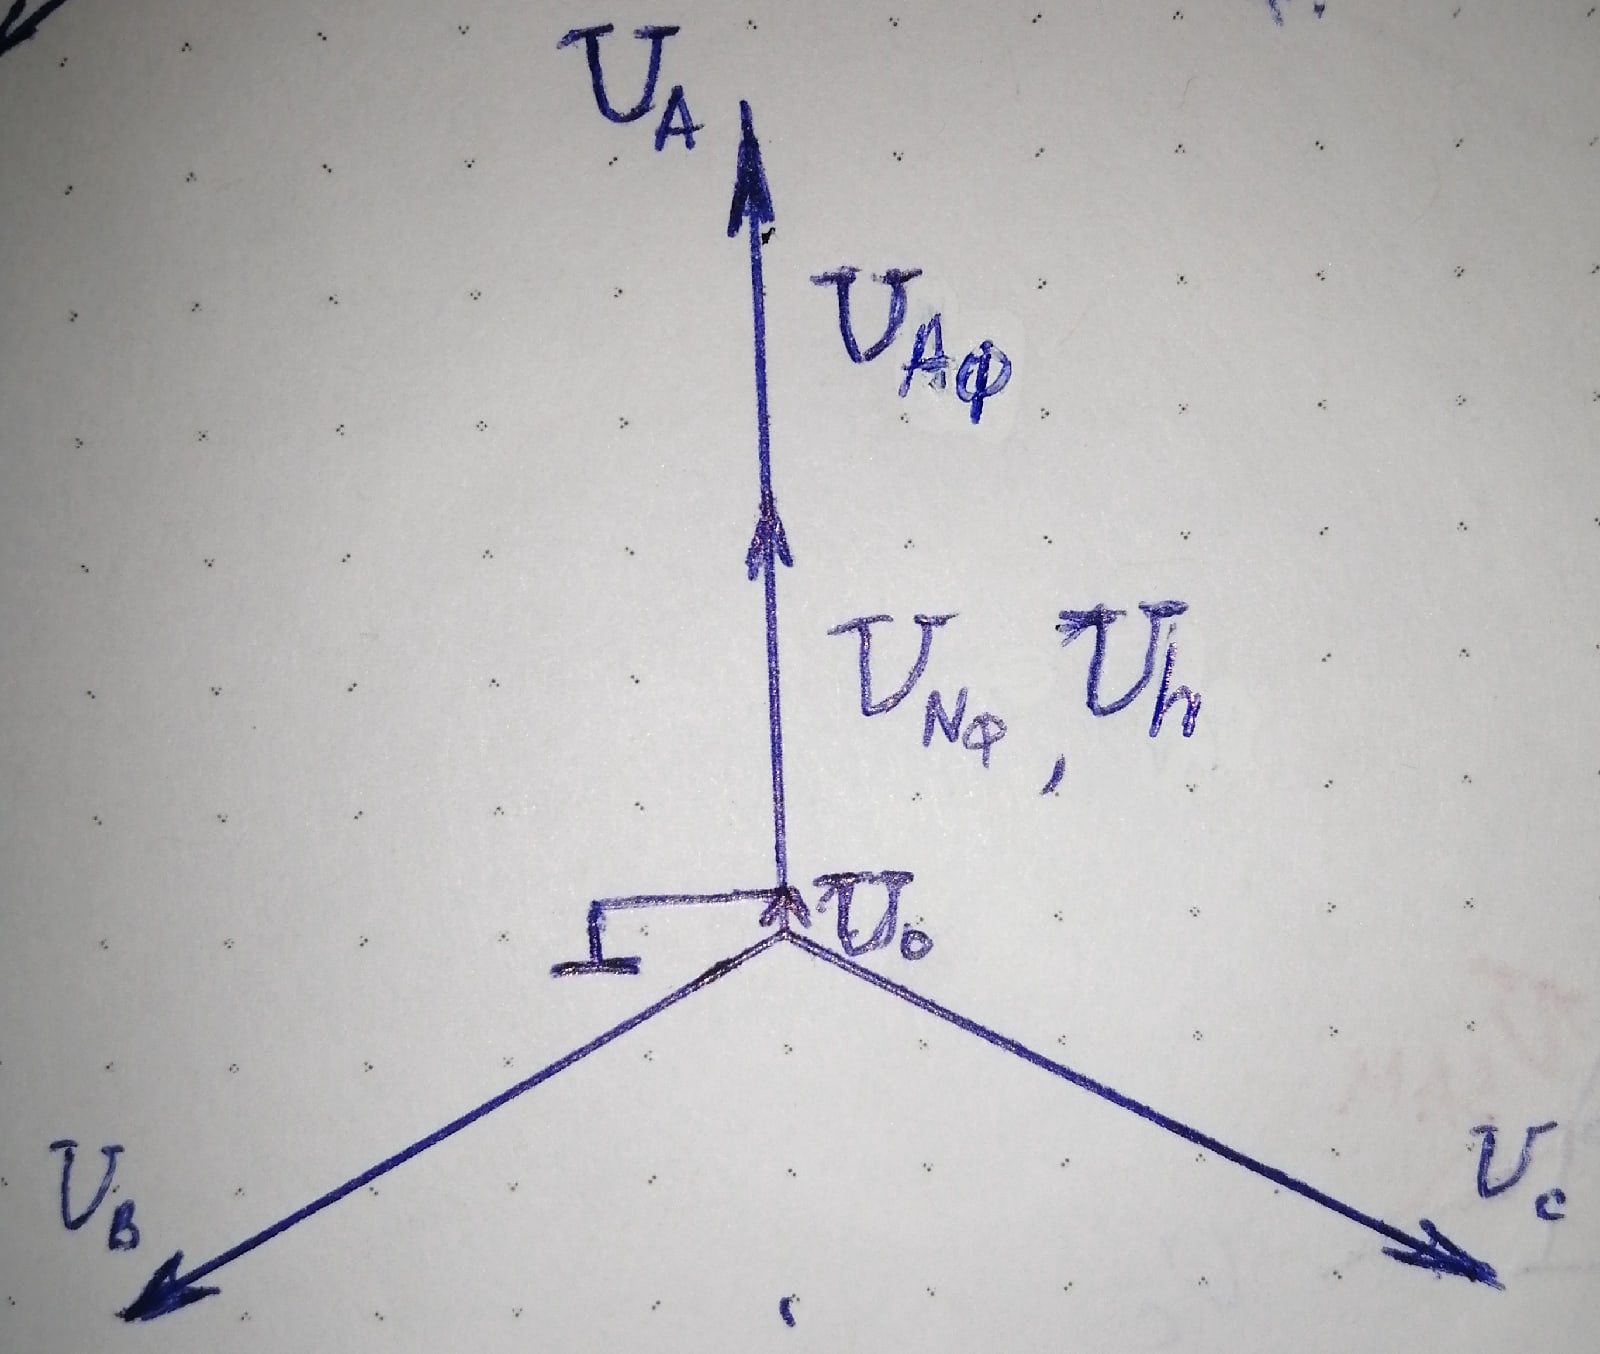 U_A
U_Aφ
U_Nφ, U_h
U_0
U_B
U_C